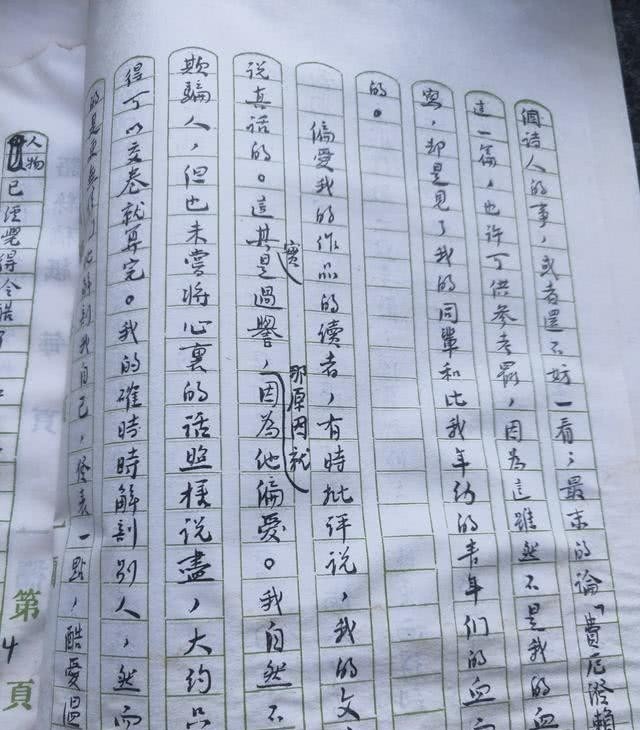 個诗人的事，或者還不妨一看；最末的論「費厄潑賴
這一篇，也许可供参考罷，因為這雖然不是我的血
寫，却是見了我的同輩和比我年幼的青年們的血而
的。
偏愛我的作品的讀者，有時批评说，我的文
说真话的。這其實是過譽，那原因就因為他偏愛。我自然不
欺騙人，但也未嘗將心裏的话照樣说盡，大约只
得可以交卷就算完。我的確時時解剖别人，然而
的是更無情面地解剖我自己，發表一點，酷愛温
人物已經覺得冷酷了
第4頁